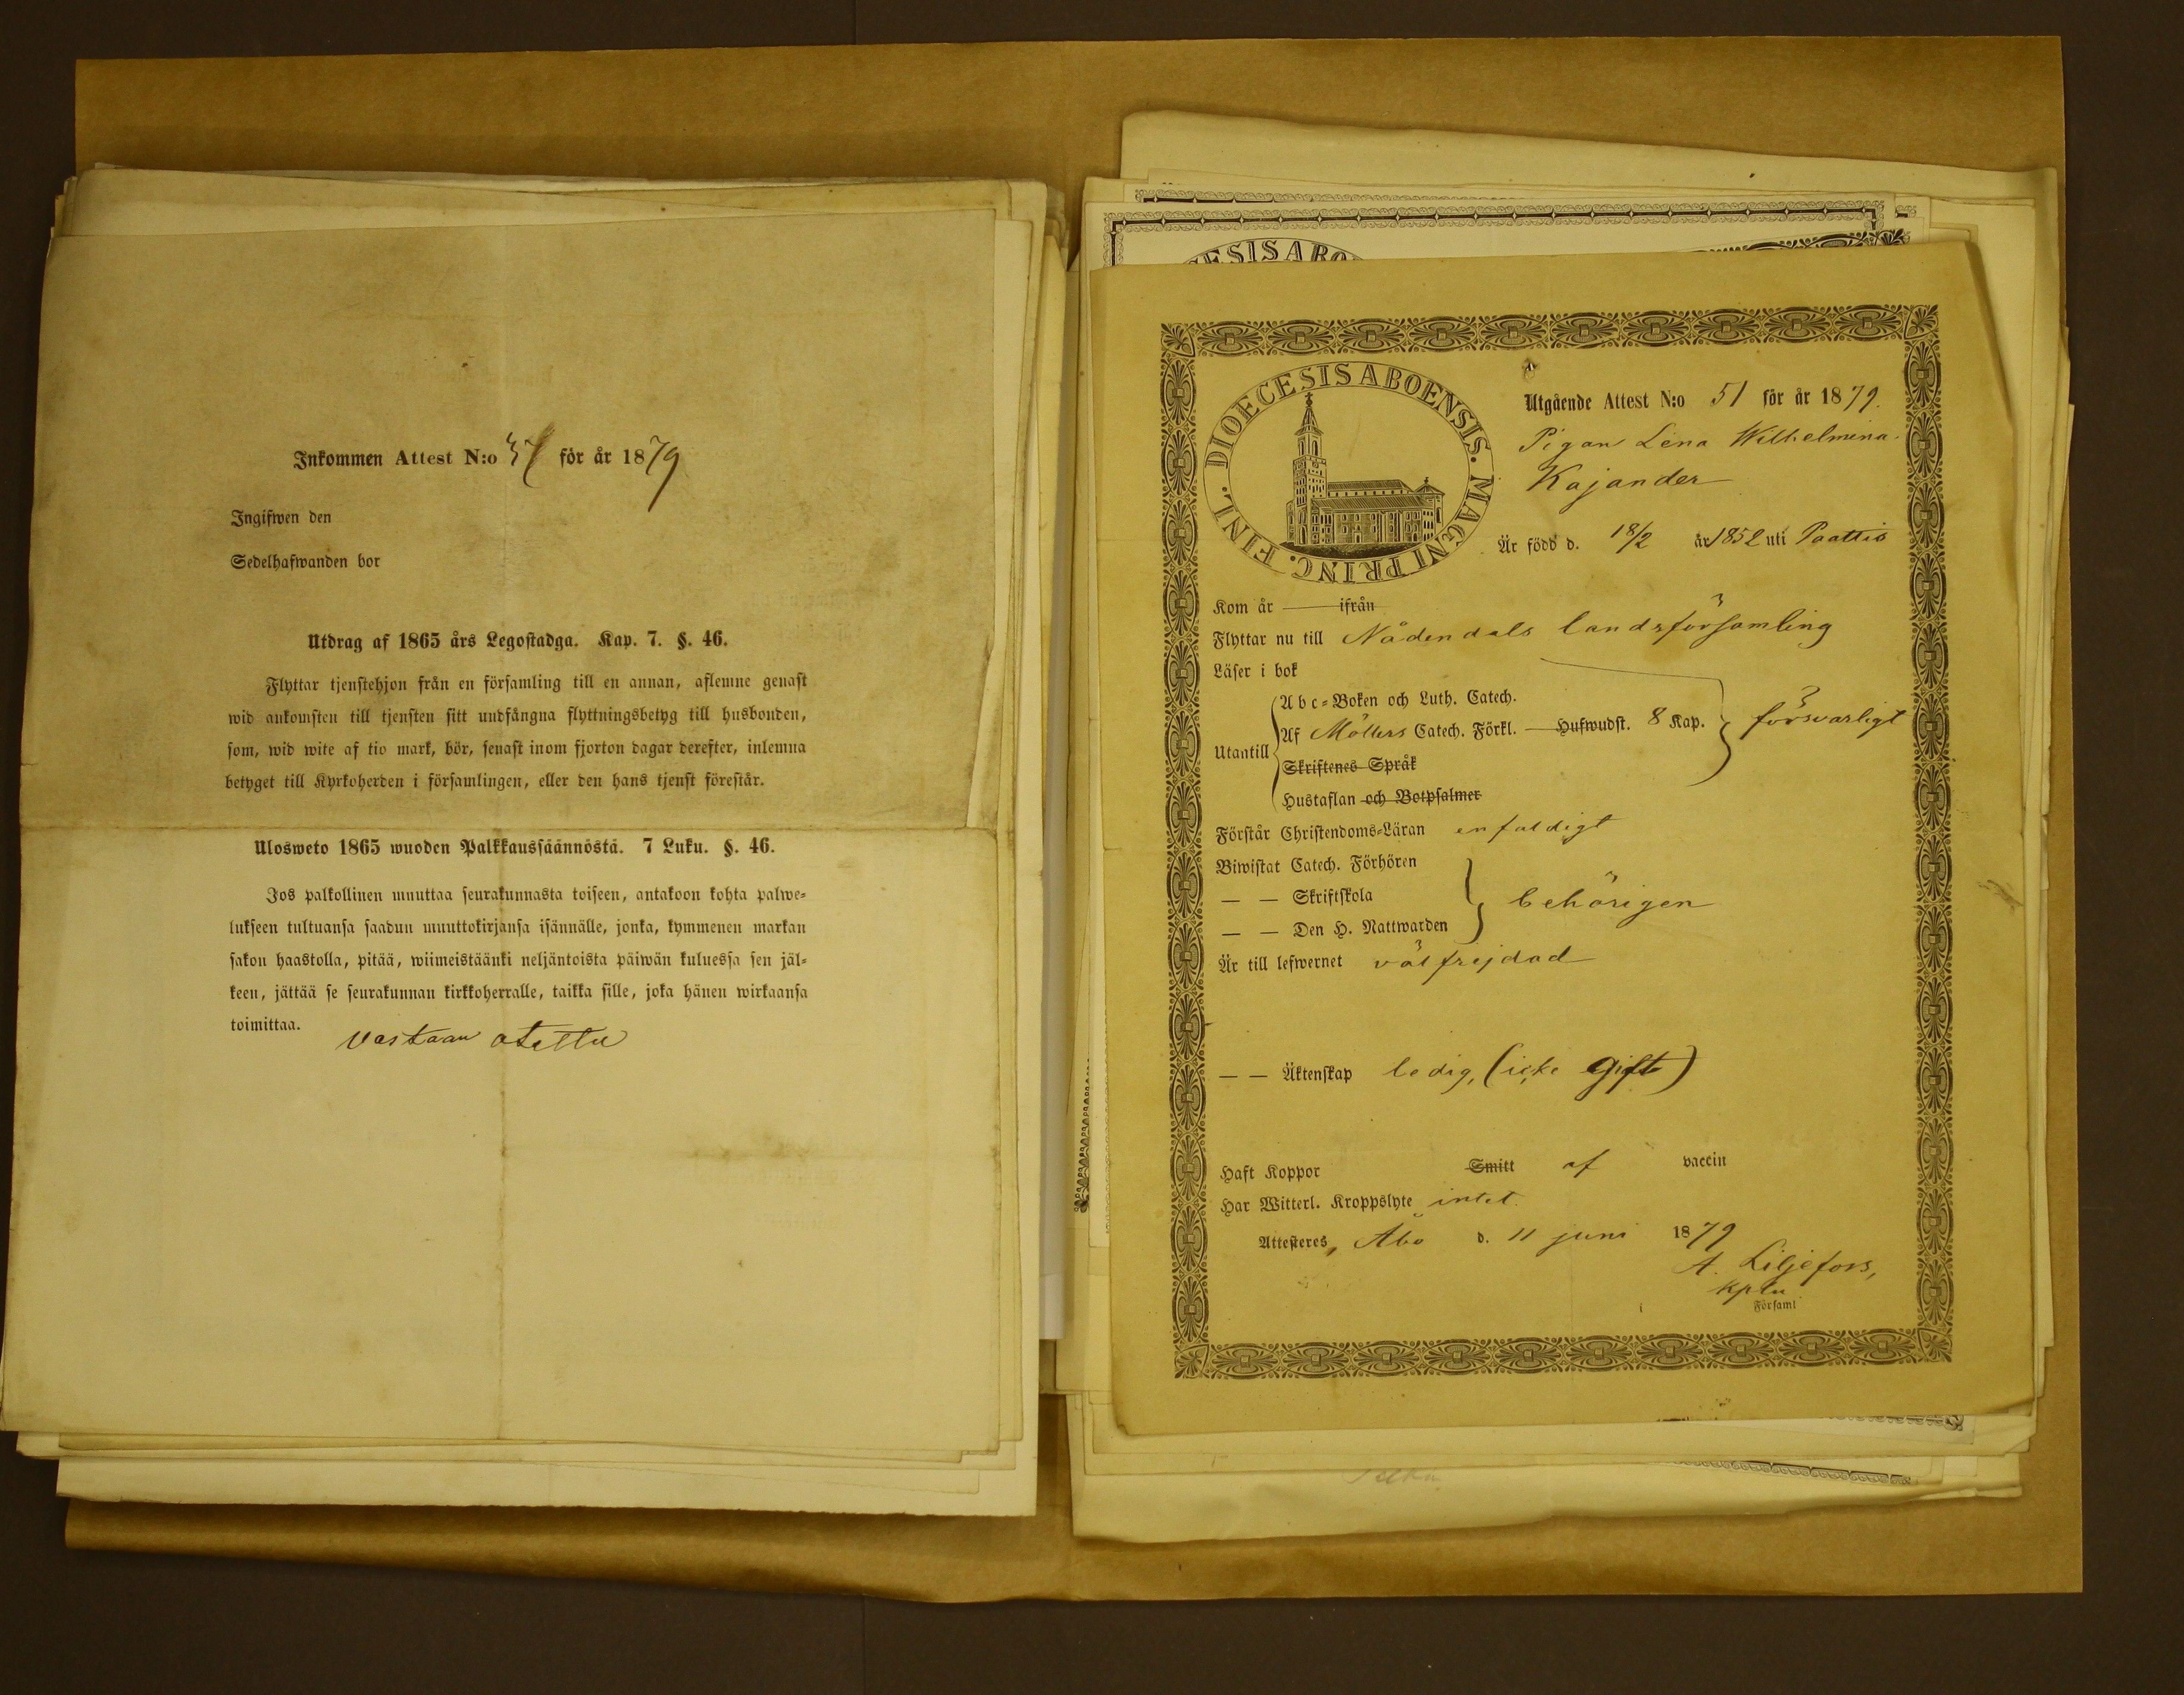 Inkommen Attest N:o för år 1879
Ingifwen den
Sedelhafwanden bor
Utdrag af 1865 års Legostadga. Kap. 7. §. 46.
Flyttar tjenstehjon från en församling till en annan, aflemne genast
wid ankomsten till tjensten sitt undfångna flyttningsbetyg till husbonden,
som, wid wite af tio mark, bör, senast inom fjorton dagar derefter, inlemna
betyget till Kyrkoherden i församlingen, eller den hans tjenst förestår.
Ulosweto 1865 wuoden Palkkaussäännöstä. 7 Luku. §. 46.
Jos palkollinen muuttaa seurakunnasta toiseen, antakoon kohta palwe-
lukseen tultuansa saadun muuttokirjansa isännälle, jonka, kymmenen markan
sakon haastolla, pitää, wiimeistäänki neljäntoista päiwän kuluessa sen jäl-
keen, jättää se seurakunnan kirkkoherralle, taikka sille, joka hänen wirkaansa
toimittaa.
Vastaan otettu
CESIS ABO
DIOECESIS ABOENSIS. MAGNI PRINC. FINL.
Utgående Attest N:o 51 för år 1879.
Pigan Lena Wilhelmina
Kajander
Är född d. 18/2 år 1852 uti Paattis
Kom år ifrån
Flyttar nu till Nådendals landsförsamling
Läser i bok
Abc-Boken och Luth. Catech.
Utantill Af Möllers Catech. Förkl. Hufwudst. 8 Kap. försvarligt
Skriftenes Språk
Hustaflan och Botpsalmer
Förstår Christendoms-Läran enfaldigt
Biwistat Catech. Förhören
— — Skriftskola behörigen
— — Den H. Nattwarden
Är till lefwernet välfrejdad
— — Äktenskap ledig, (icke gift)
Haft Koppor Smitt af vaccin
Har Witterl. Kroppslyte intet.
Attesteres, Åbo d. 11 juni 1879
A. Liljefors,
kpln
i Församl